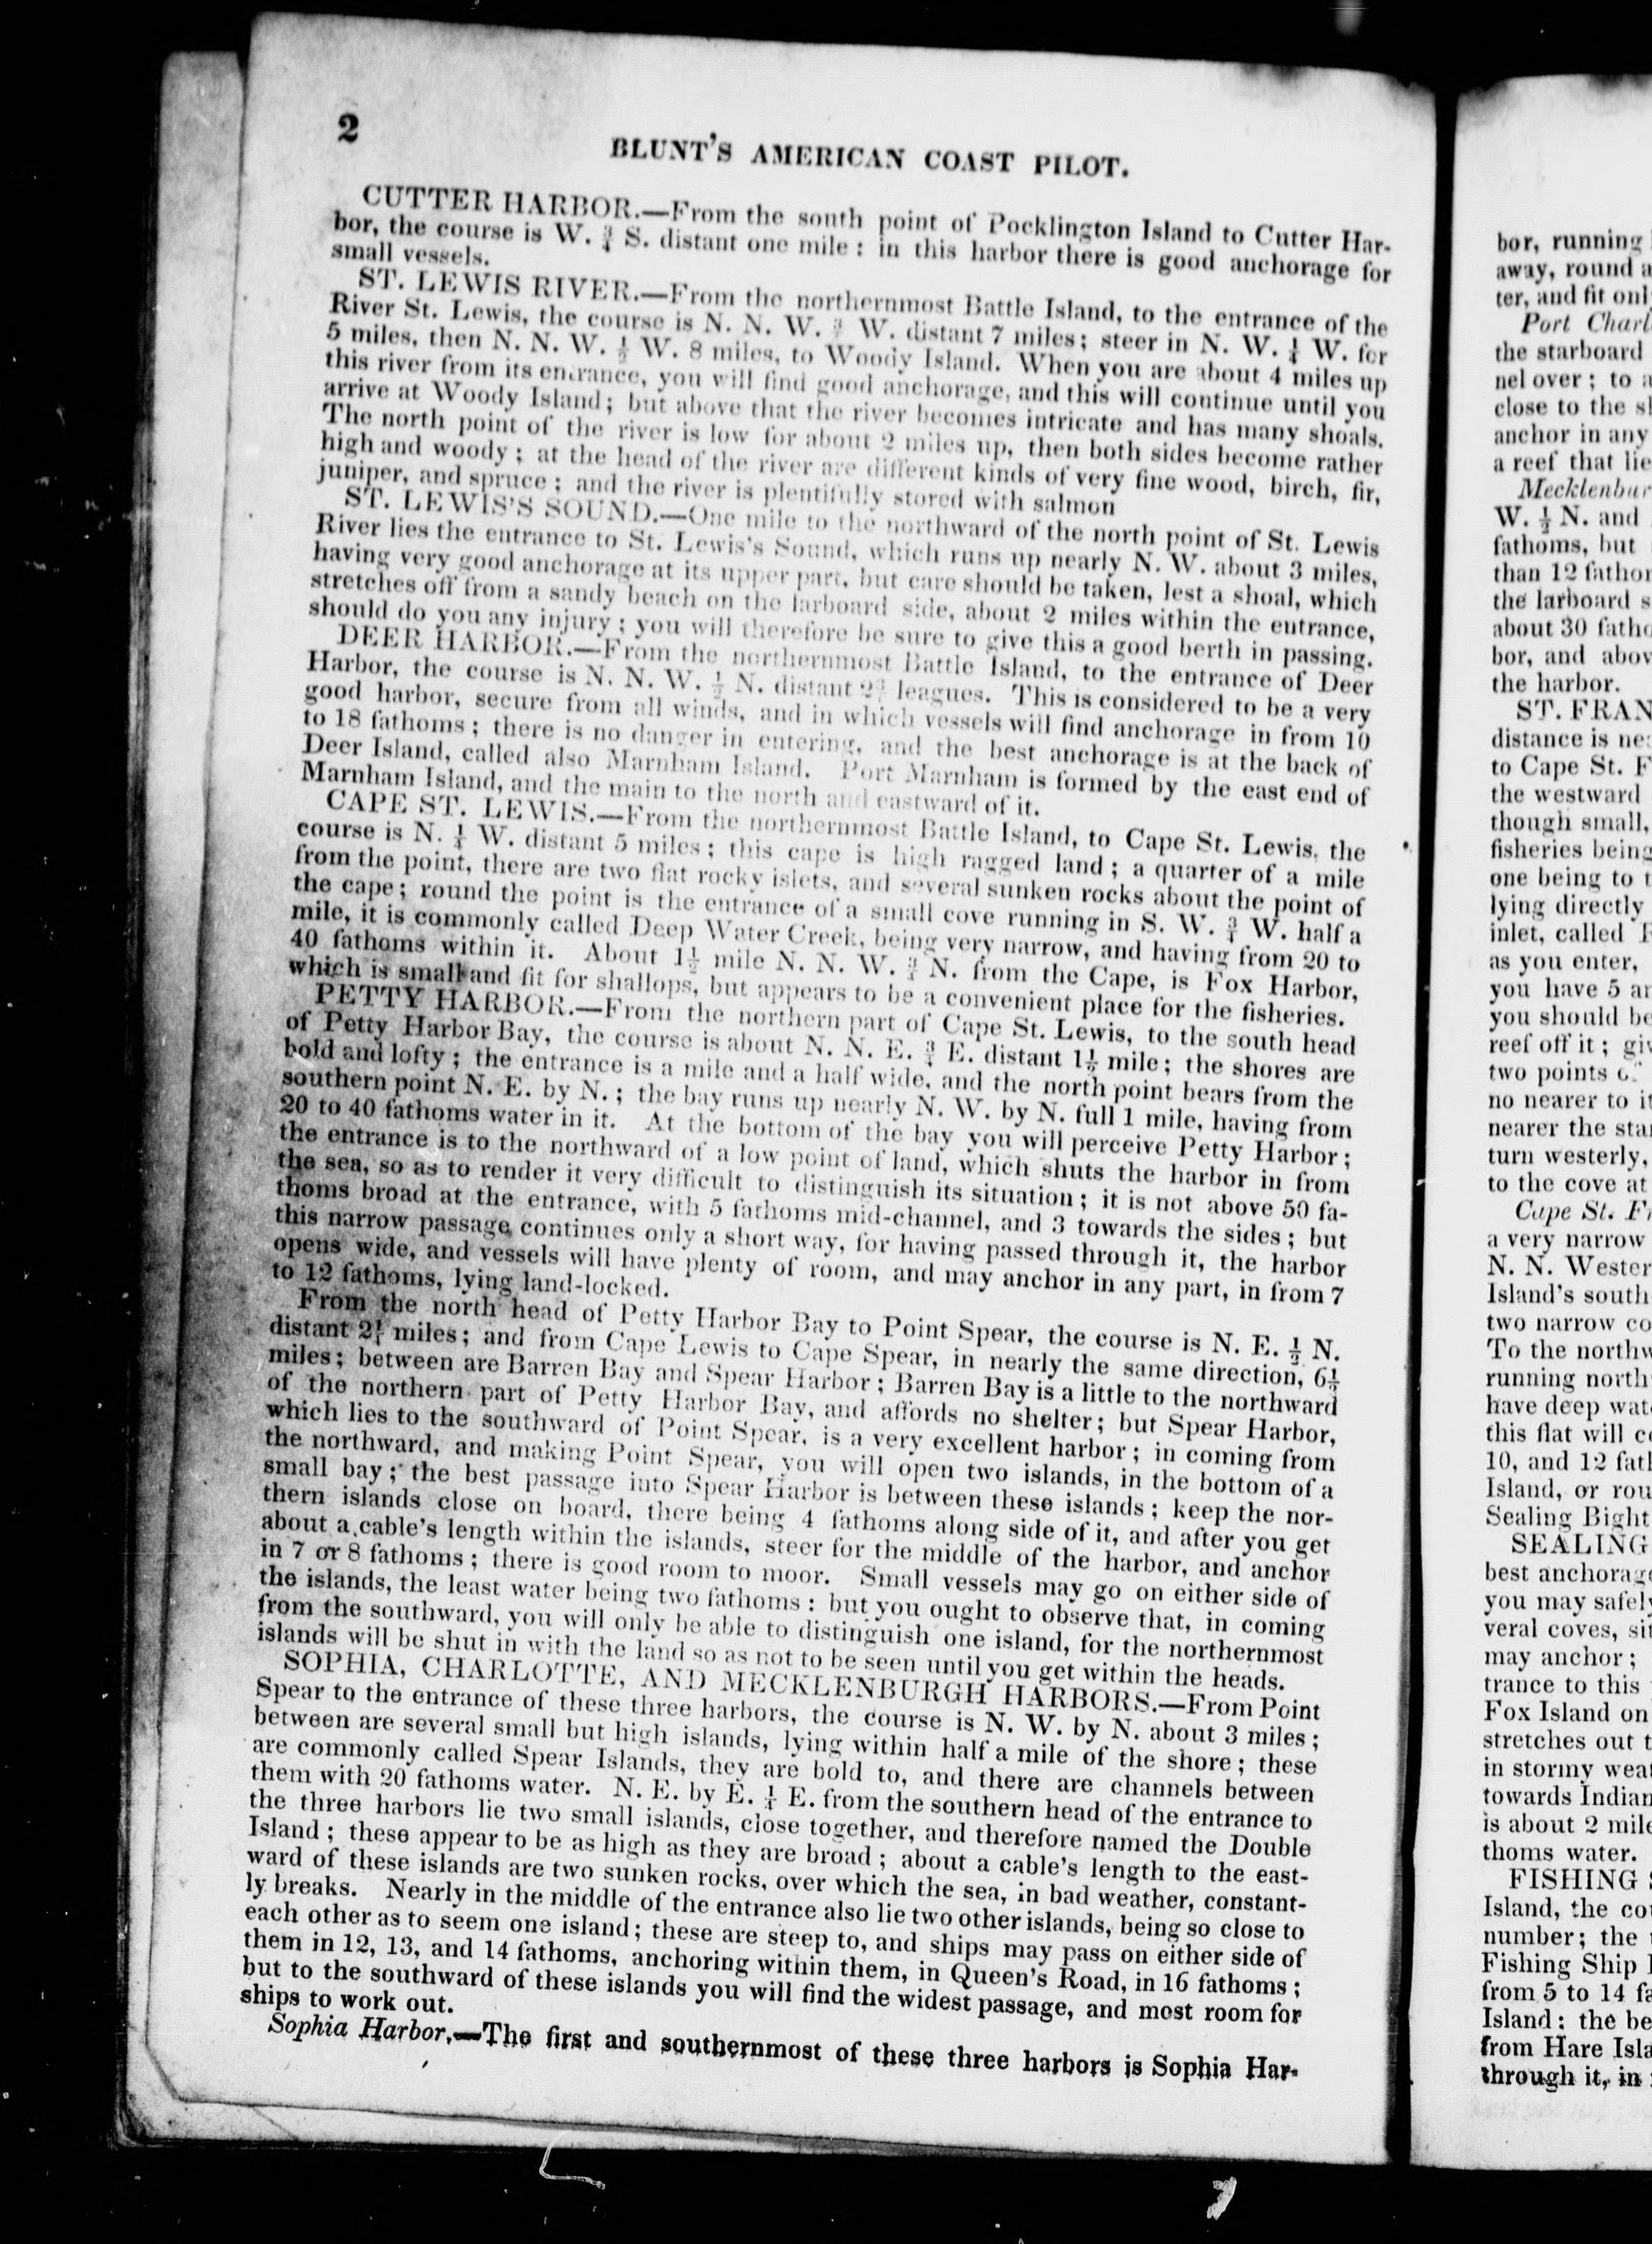 2
BLUNT'S AMERICAN COAST PILOT.
CUTTER HARBOR.—From the south point of Pocklington Island to Cutter Har-
bor, the course is W. ¾ S. distant one mile: in this harbor there is good anchorage for
small vessels.
ST. LEWIS RIVER.—From the northernmost Battle Island, to the entrance of the
River St. Lewis, the course is N. N. W. ¾ W. distant 7 miles; steer in N. W. ¼ W. for
5 miles, then N. N. W. ½ W. 8 miles, to Woody Island. When you are about 4 miles up
this river from its entrance, you will find good anchorage, and this will continue until you
arrive at Woody Island; but above that the river becomes intricate and has many shoals.
The north point of the river is low for about 2 miles up, then both sides become rather
high and woody; at the head of the river are different kinds of very fine wood, birch, fir,
juniper, and spruce; and the river is plentifully stored with salmon
ST. LEWIS'S SOUND.—One mile to the northward of the north point of St. Lewis
River lies the entrance to St. Lewis's Sound, which runs up nearly N. W. about 3 miles,
having very good anchorage at its upper part, but care should be taken, lest a shoal, which
stretches off from a sandy beach on the larboard side, about 2 miles within the entrance,
should do you any injury; you will therefore be sure to give this a good berth in passing.
DEER HARBOR.—From the northernmost Battle Island, to the entrance of Deer
Harbor, the course is N. N. W. ½ N. distant 2¾ leagues. This is considered to be a very
good harbor, secure from all winds, and in which vessels will find anchorage in from 10
to 18 fathoms; there is no danger in entering, and the best anchorage is at the back of
Deer Island, called also Marnham Island. Port Marnham is formed by the east end of
Marnham Island, and the main to the north and eastward of it.
CAPE ST. LEWIS.—From the northernmost Battle Island, to Cape St. Lewis, the
course is N. ¼ W. distant 5 miles; this cape is high ragged land; a quarter of a mile
from the point, there are two flat rocky islets, and several sunken rocks about the point of
the cape; round the point is the entrance of a small cove running in S. W. ¾ W. half a
mile, it is commonly called Deep Water Creek, being very narrow, and having from 20 to
40 fathoms within it. About 1½ mile N. N. W. ¾ N. from the Cape, is Fox Harbor,
which is small and fit for shallops, but appears to be a convenient place for the fisheries.
PETTY HARBOR.—From the northern part of Cape St. Lewis, to the south head
of Petty Harbor Bay, the course is about N. N. E. ¾ E. distant 1½ mile; the shores are
bold and lofty; the entrance is a mile and a half wide, and the north point bears from the
southern point N. E. by N.; the bay runs up nearly N. W. by N. full 1 mile, having from
20 to 40 fathoms water in it. At the bottom of the bay you will perceive Petty Harbor;
the entrance is to the northward of a low point of land, which shuts the harbor in from
the sea, so as to render it very difficult to distinguish its situation; it is not above 50 fa-
thoms broad at the entrance, with 5 fathoms mid-channel, and 3 towards the sides; but
this narrow passage continues only a short way, for having passed through it, the harbor
opens wide, and vessels will have plenty of room, and may anchor in any part, in from 7
to 12 fathoms, lying land-locked.
From the north head of Petty Harbor Bay to Point Spear, the course is N. E. ½ N.
distant 2¼ miles; and from Cape Lewis to Cape Spear, in nearly the same direction, 6½
miles; between are Barren Bay and Spear Harbor; Barren Bay is a little to the northward
of the northern part of Petty Harbor Bay, and affords no shelter; but Spear Harbor,
which lies to the southward of Point Spear, is a very excellent harbor; in coming from
the northward, and making Point Spear, you will open two islands, in the bottom of a
small bay; the best passage into Spear Harbor is between these islands; keep the nor-
thern islands close on board, there being 4 fathoms along side of it, and after you get
about a cable's length within the islands, steer for the middle of the harbor, and anchor
in 7 or 8 fathoms; there is good room to moor. Small vessels may go on either side of
the islands, the least water being two fathoms: but you ought to observe that, in coming
from the southward, you will only be able to distinguish one island, for the northernmost
islands will be shut in with the land so as not to be seen until you get within the heads.
SOPHIA, CHARLOTTE, AND MECKLENBURGH HARBORS.—From Point
Spear to the entrance of these three harbors, the course is N. W. by N. about 3 miles;
between are several small but high islands, lying within half a mile of the shore; these
are commonly called Spear Islands, they are bold to, and there are channels between
them with 20 fathoms water. N. E. by E. ¼ E. from the southern head of the entrance to
the three harbors lie two small islands, close together, and therefore named the Double
Island; these appear to be as high as they are broad; about a cable's length to the east-
ward of these islands are two sunken rocks, over which the sea, in bad weather, constant-
ly breaks. Nearly in the middle of the entrance also lie two other islands, being so close to
each other as to seem one island; these are steep to, and ships may pass on either side of
them in 12, 13, and 14 fathoms, anchoring within them, in Queen's Road, in 16 fathoms;
but to the southward of these islands you will find the widest passage, and most room for
ships to work out.
Sophia Harbor.—The first and southernmost of these three harbors is Sophia Har-
bor, running
away, round a
ter, and fit onl
Port Charl
the starboard
nel over; to a
close to the sh
anchor in any
a reef that lie
Mecklenbur
W. ½ N. and
fathoms, but
than 12 fathom
the larboard s
about 30 fatho
bor, and abov
the harbor.
ST. FRAN
distance is ne
to Cape St. F
the westward
though small,
fisheries being
one being to t
lying directly
inlet, called
as you enter,
you have 5 an
you should be
reef off it; giv
two points
no nearer to it
nearer the star
turn westerly,
to the cove at
Cape St. Fr
a very narrow
N. N. Wester
Island's south
two narrow co
To the northw
running north
have deep wat
this flat will c
10, and 12 fath
Island, or rou
Sealing Bight
SEALING
best anchorage
you may safely
veral coves, sit
may anchor;
trance to this
Fox Island on
stretches out t
in stormy weat
towards Indian
is about 2 mile
thoms water.
FISHING
Island, the cou
number; the
Fishing Ship
from 5 to 14 fa
Island: the be
from Hare Isla
through it, in